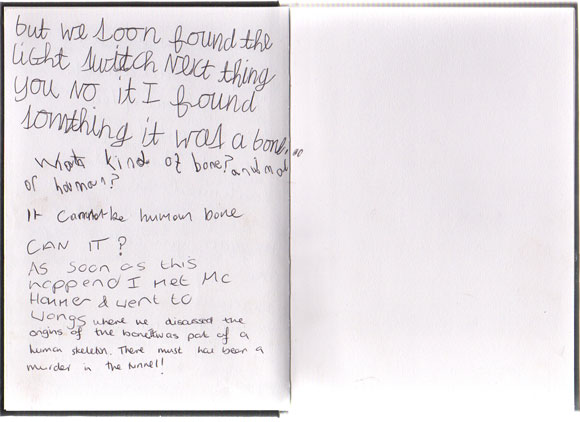 but we soon found the
light switch next thing
you no it I found
somthing it was a bone...
What kind of bone? animal
or human?
It cannot be human bone
CAN IT?
As soon as this
happend I met Mc
Hammer & went to
Wongs where we discussed the
origins of the bone. It was part of a
human skeleton. There must has been a
murder in the tunnel!